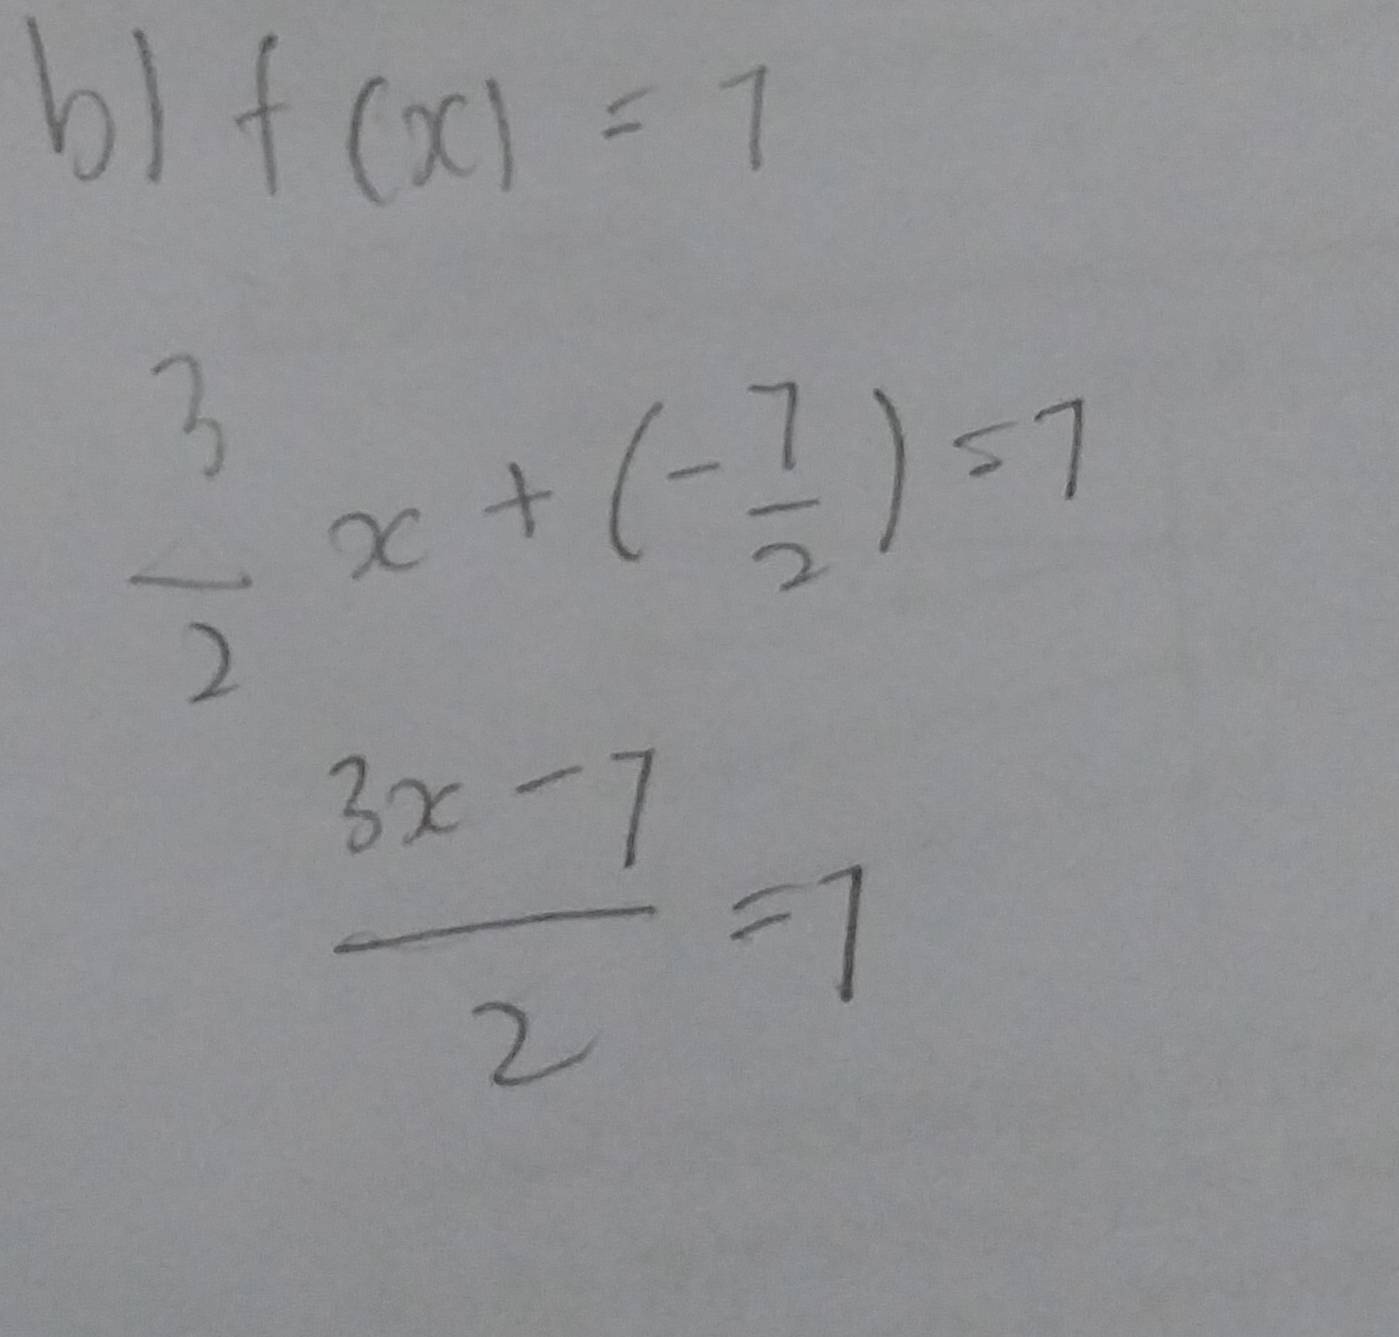 b) f(x) = 7
3/2 x + (-7/2) = 7
3x - 7 / 2 = 7